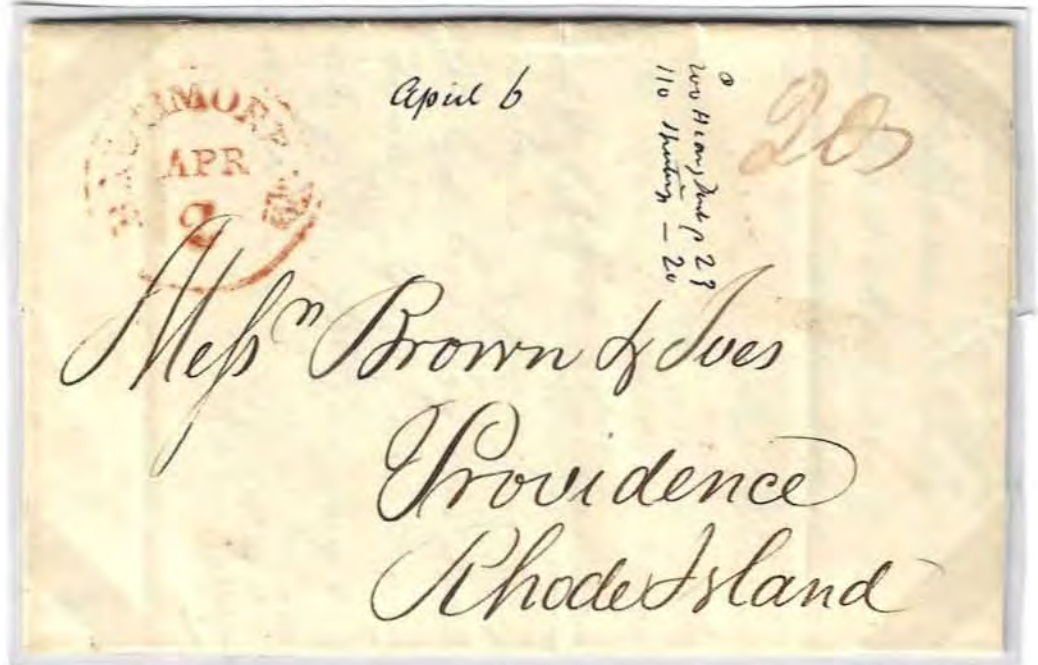 BALTIMORE MD
APR
2
April 6
20
110 - 20
Messrs Brown & Ives
Providence
Rhode Island